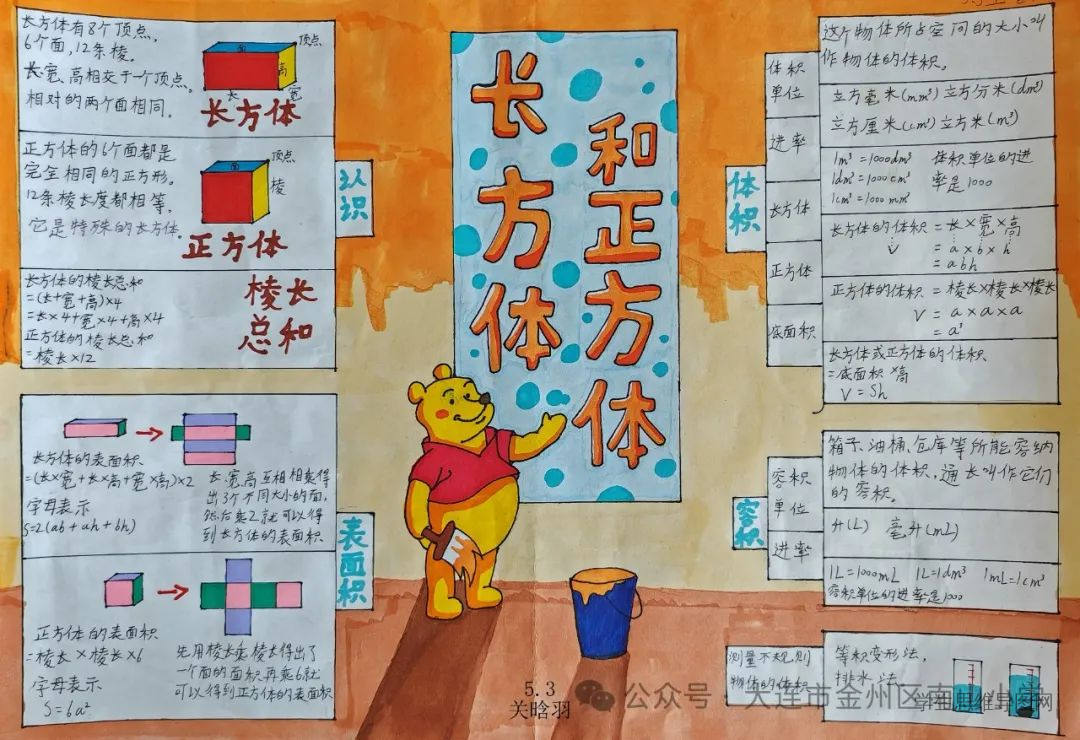 长方体和正方体
认识
长方体有8个顶点,
6个面,12条棱。
长、宽、高相交于一个顶点。
相对的两个面相同。
面
顶点
高
长
宽
长方体
正方体的6个面都是
完全相同的正方形。
12条棱长度都相等。
它是特殊的长方体.
面
顶点
棱
正方体
长方体的棱长总和
=(长+宽+高)×4
=长×4+宽×4+高×4
正方体的棱长总和
=棱长×12
棱长
总和
表面积
长方体的表面积
=(长×宽+长×高+宽×高)×2
字母表示
S=2(ab+ah+bh)
长、宽、高互相相乘得
出3个不同大小的面,
然后乘2就可以得
到长方体的表面积.
正方体的表面积
=棱长×棱长×6
字母表示
S=6a²
先用棱长乘棱长得出了
一个面的面积再乘6就
可以得到正方体的表面积
体积
体积
单位
进率
长方体
正方体
底面积
这个物体所占空间的大小叫
作物体的体积。
立方毫米(mm³)立方分米(dm³)
立方厘米(cm³)立方米(m³)
1m³=1000dm³
1dm³=1000cm³
1cm³=1000mm³
体积单位的进
率是1000
长方体的体积=长×宽×高
V=a×b×h
=abh
正方体的体积=棱长×棱长×棱长
V=a×a×a
=a³
长方体或正方体的体积
=底面积×高
V=Sh
容积
容积
单位
进率
箱子、油桶、仓库等所能容纳
物体的体积,通长叫作它们
的容积.
升(L) 毫升(mL)
1L=1000mL 1L=1dm³ 1mL=1cm³
容积单位的进率是1000
测量不规则
物体的体积
等积变形法,
排水法
5.3
关晗羽
公众号·大连市金州区南
学相思维导图网